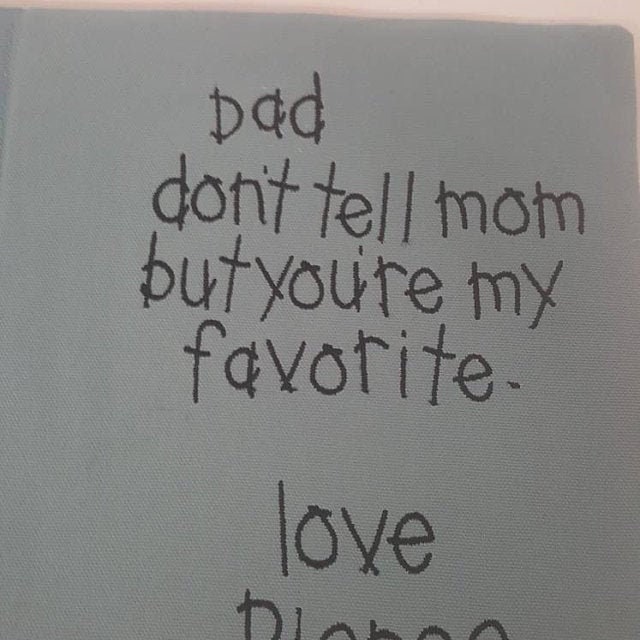 Dad
don't tell mom
but you're my
favorite.
love